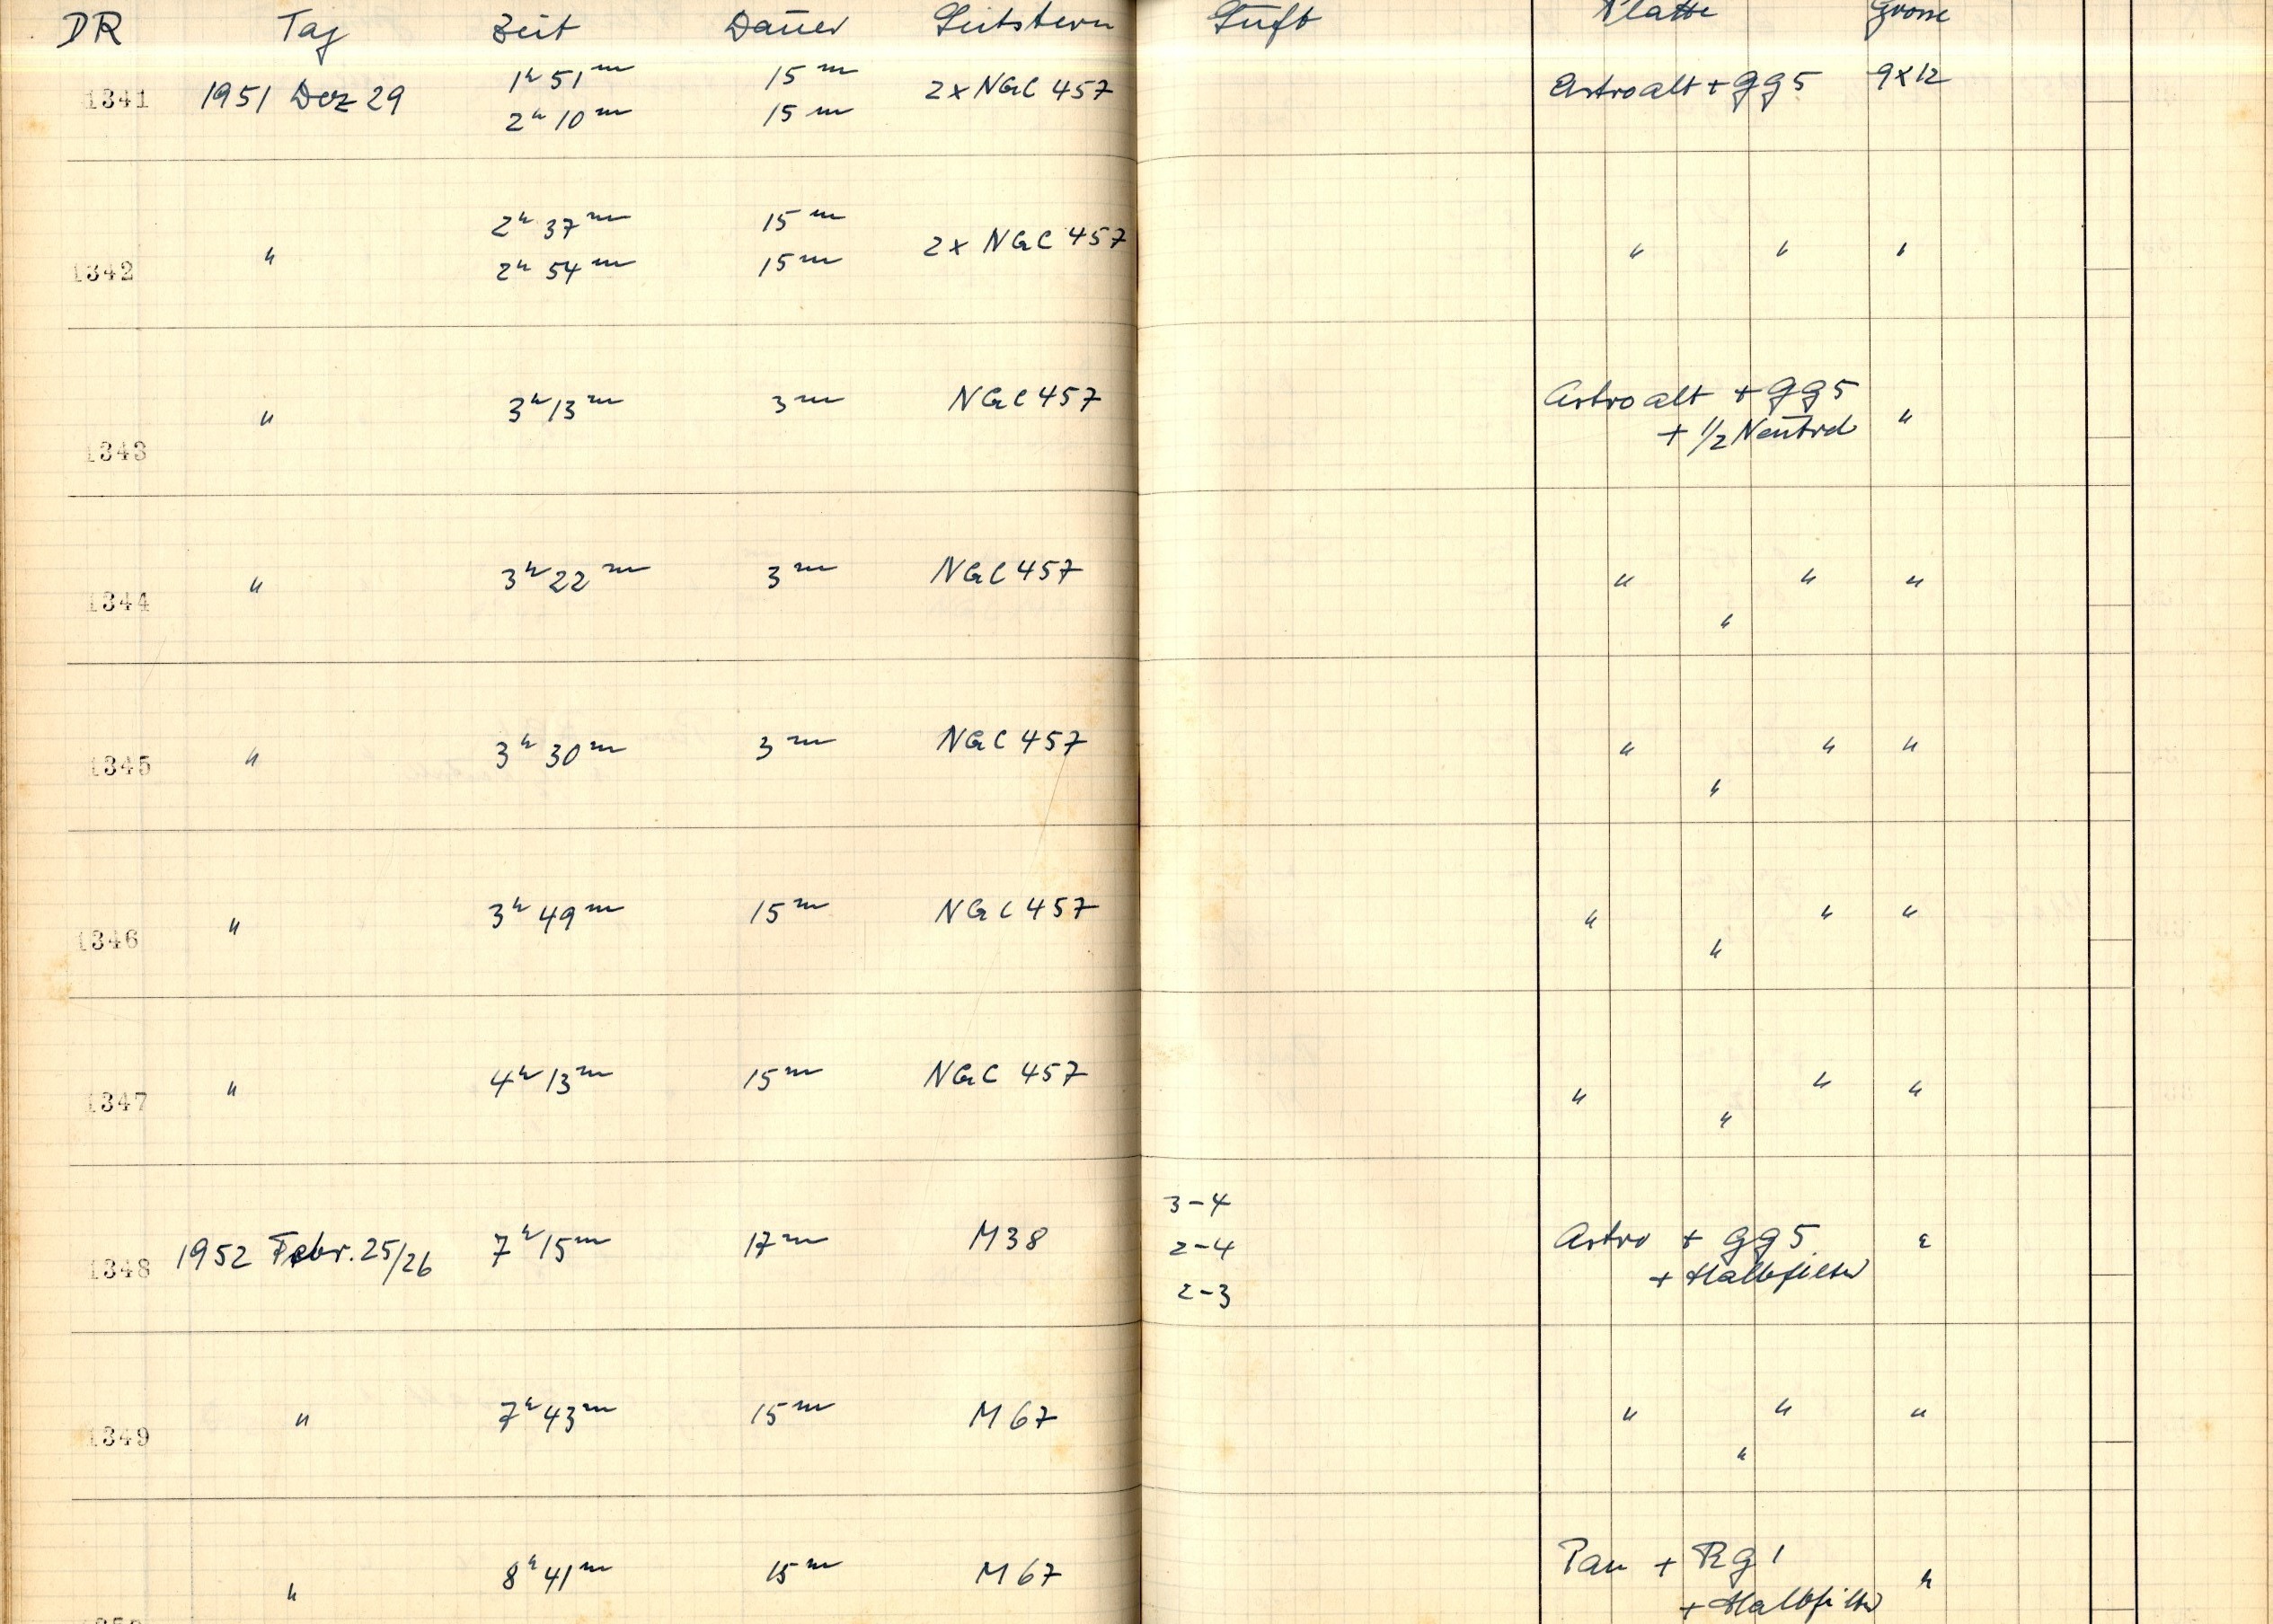 DR Tag Zeit Dauer Leitstern Luft Platte Grösse
1341 1951 Dez 29 1h 51m 15m 2x NGC 457 Astro alt + GG5 9x12
2h 10m 15m
1342 " 2h 37m 15m 2x NGC 457 " " "
2h 54m 15m
1343 " 3h 13m 3m NGC 457 Astro alt + GG5 "
+ 1/2 Neutral
1344 " 3h 22m 3m NGC 457 " " "
"
1345 " 3h 30m 3m NGC 457 " " "
"
1346 " 3h 49m 15m NGC 457 " " "
"
1347 " 4h 13m 15m NGC 457 " " "
"
3-4
1348 1952 Febr. 25/26 7h 15m 17m M38 2-4 Astro + GG5
+ Halbfilter
2-3
1349 " 7h 43m 15m M67 " " "
"
" 8h 41m 15m M67 Pan + RG1 "
+ Halbfilter